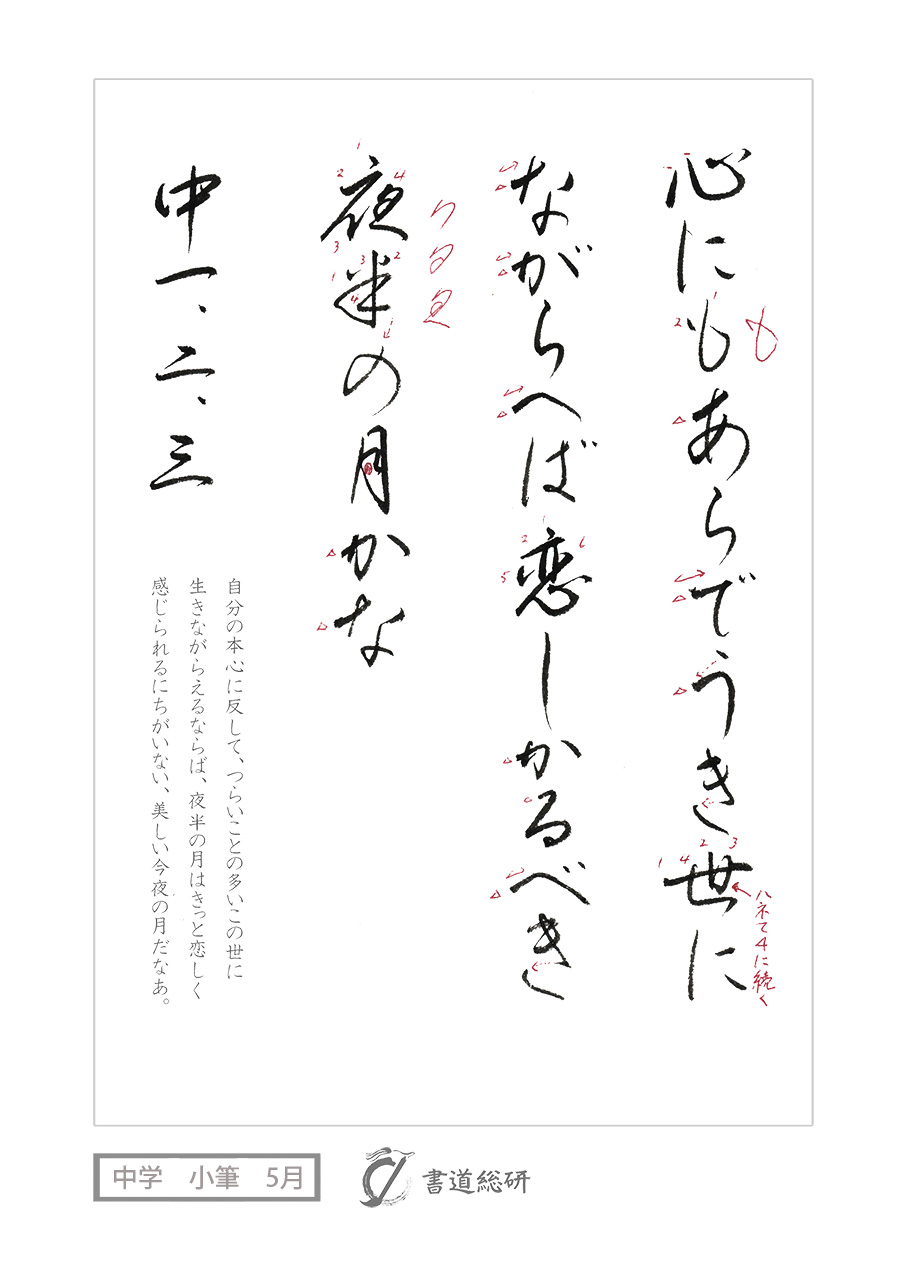 心にもあらでうき世に
ながらへば恋しかるべき
夜半の月かな
中一、二、三
も
ハネて4に続く
自分の本心に反して、つらいことの多いこの世に
生きながらえるならば、夜半の月はきっと恋しく
感じられるにちがいない、美しい今夜の月だなあ。
中学 小筆 5月
書道総研